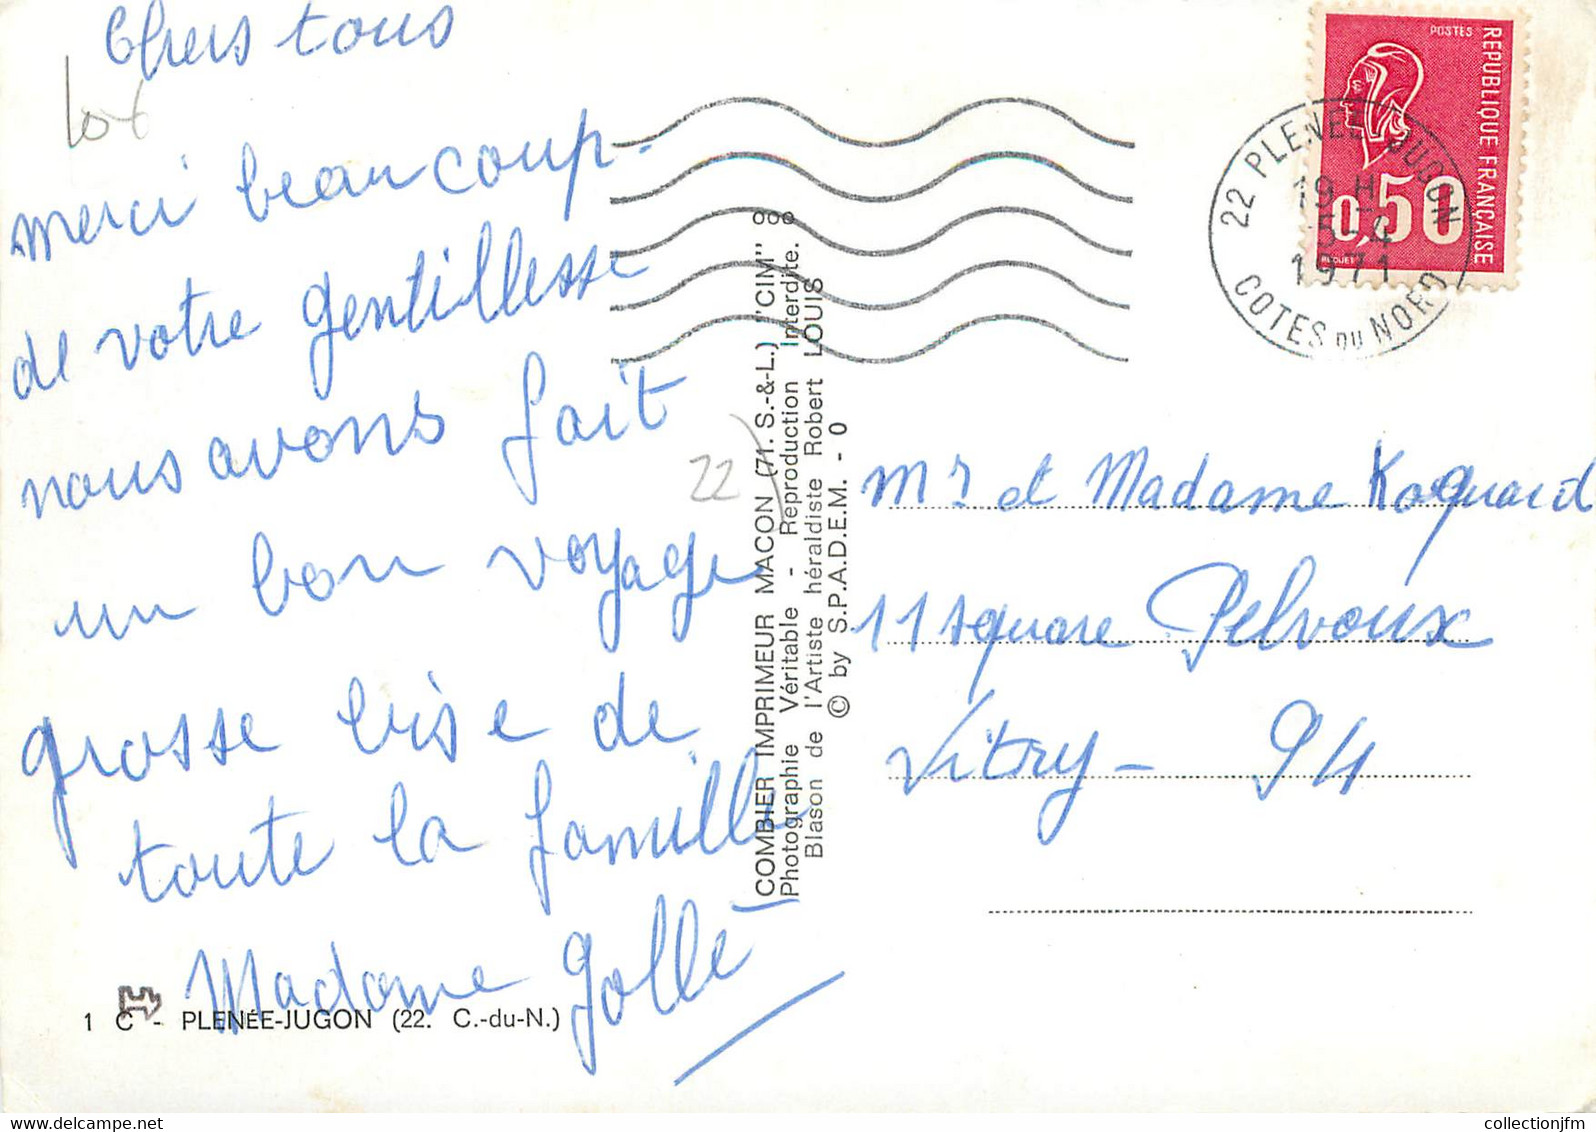 Chers tous
merci beaucoup.
de votre gentillesse
nous avons fait
un bon voyage
grosse bise de
toute la famille
Madame Jollé
1 C - PLENÉE-JUGON (22. C.-du-N.)
22
COMBIER IMPRIMEUR MACON (71. S.-&-L.) "CIM"
Photographie Véritable - Reproduction Interdite.
Blason de l'Artiste héraldiste Robert LOUIS
© by S.P.A.D.E.M. - 0
POSTES
REPUBLIQUE FRANÇAISE
0,50
22 PLENEE JUGON
19 H
5-4
1971
COTES DU NORD
Mr et Madame Koquard
11 square Pelvoux
Vitry - 94
collectionjfm